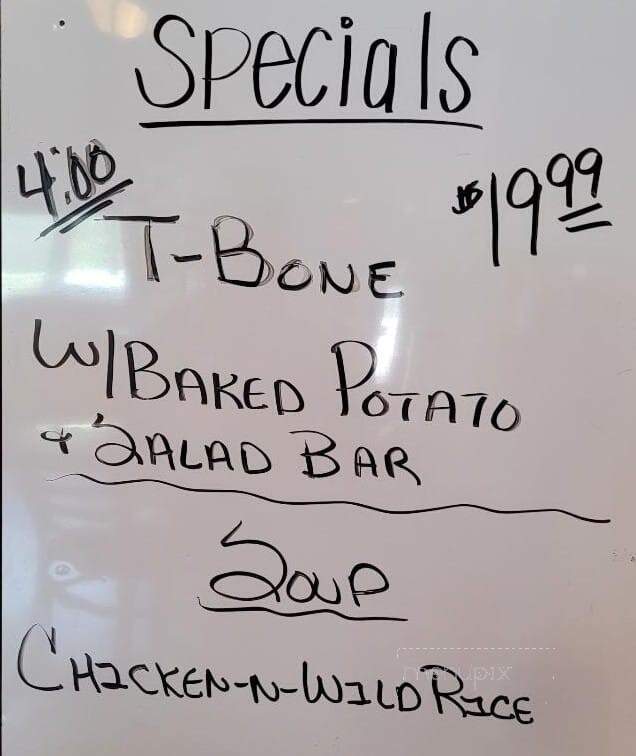 Specials
4:00
$19.99
T-BONE
W/BAKED POTATO
& SALAD BAR
Soup
CHICKEN-N-WILD RICE
menupix